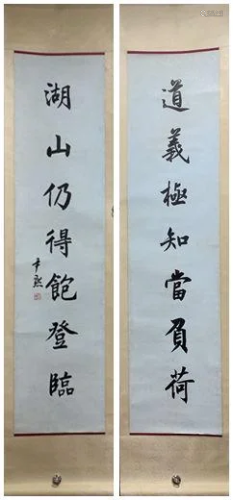 道義極知當負荷
湖山仍得飽登臨